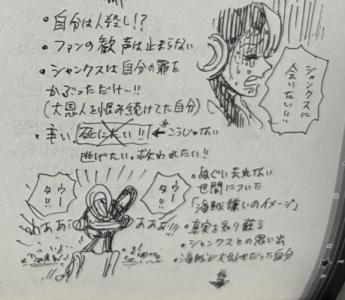 ・自分は人殺し!?
・ファンの歓声は止まらない
・シャンクスは自分の罪を
かぶっただけ…!!
(大恩人を恨み続けてた自分)
・辛い 死にたい!! ←こうじゃない
逃げたい、救われたい!!
シャンクスに
会いたいい…
ウタ
ー!!
ウタ
ー!!
ああ
あああ!!!
・ぬぐい去れない
世間についた
「海賊嫌いのイメージ」
・真実を知り蘇る
・シャンクスとの思い出
・海賊が大好きだった自分